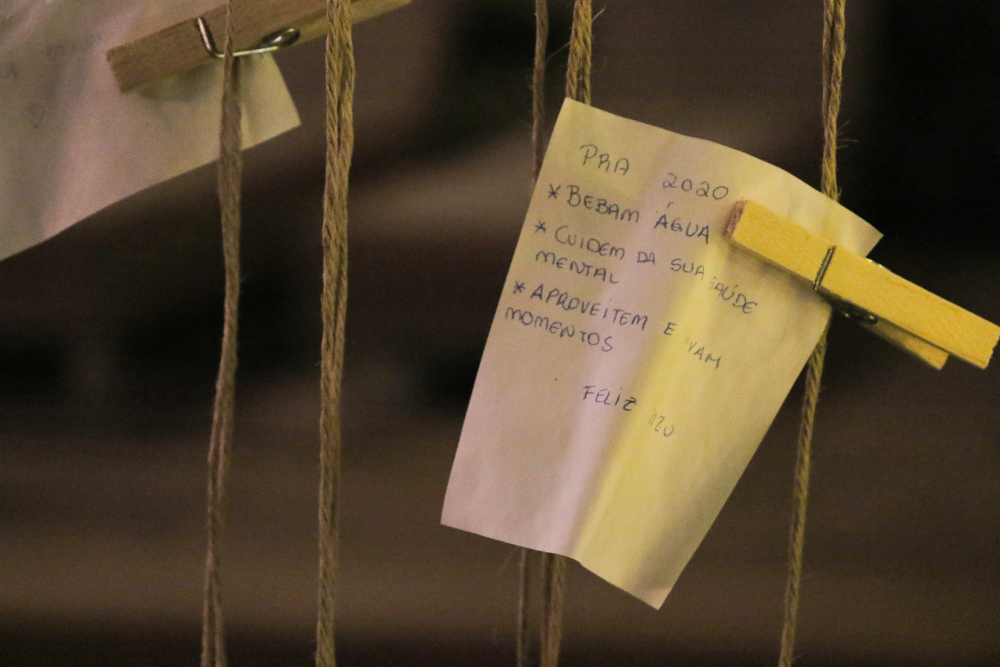 PRA 2020
* BEBAM ÁGUA
* CUIDEM DA SUA SAÚDE
MENTAL
* APROVEITEM E
MOMENTOS
FELIZ